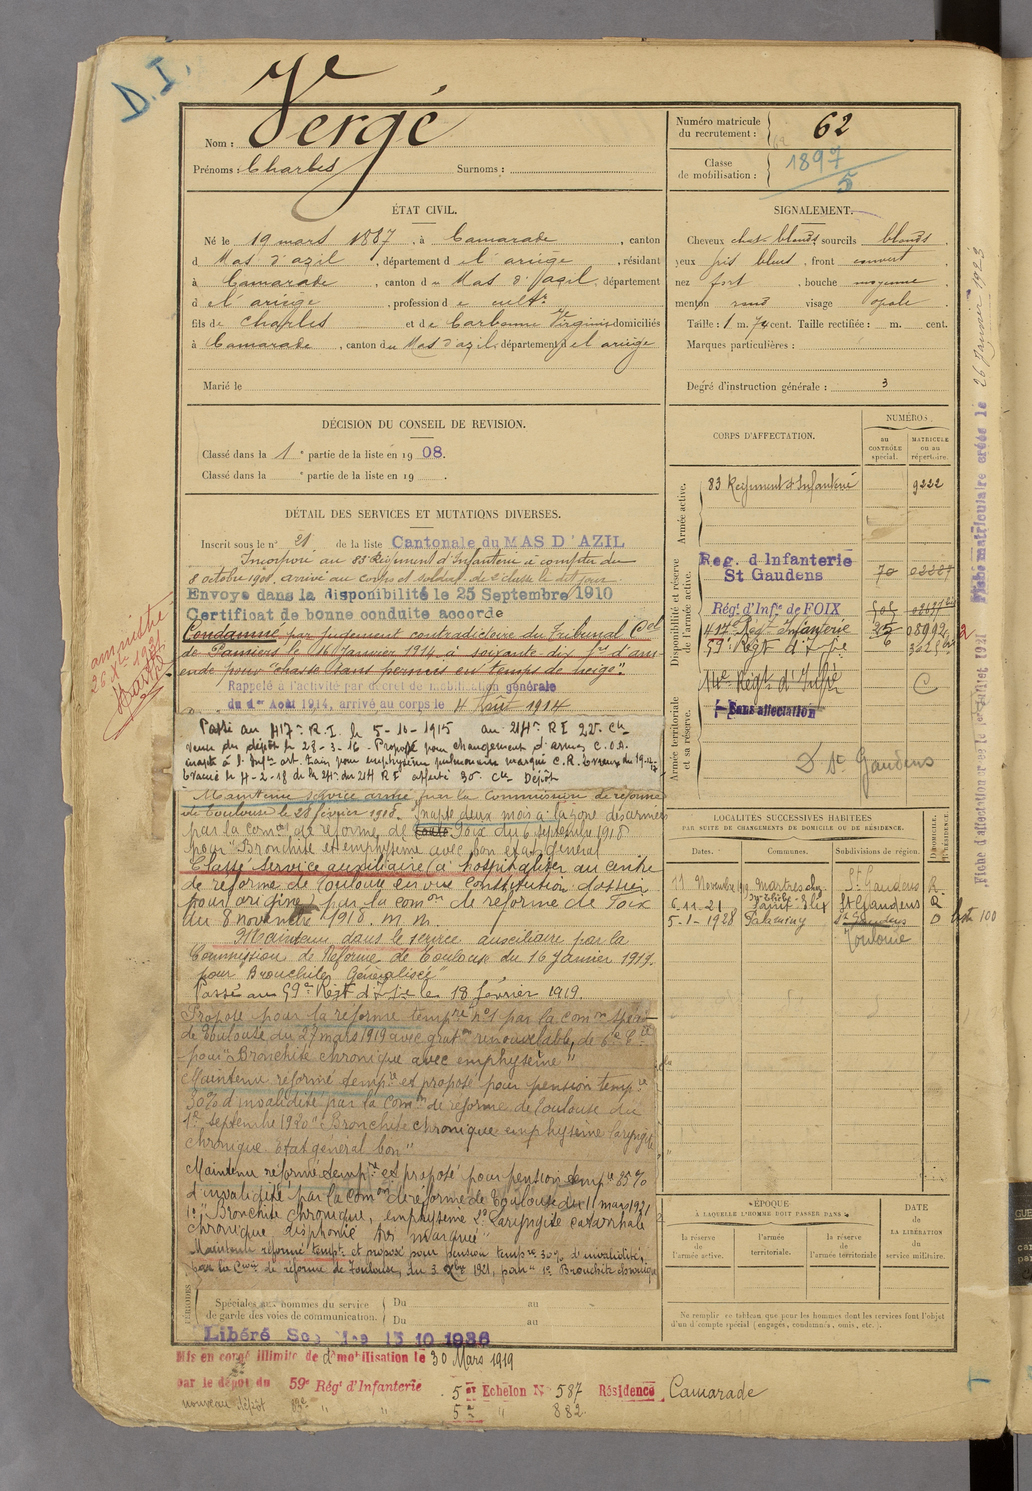 D.I.
Vergé
Nom :
Prénoms : Charles Surnoms :
Numéro matricule
du recrutement : 62
Classe
de mobilisation : 1897
5
ÉTAT CIVIL.
Né le 19 mars 1887, à Camarade, canton
d Mas d'azil, département d e l'ariège, résidant
à Camarade, canton du Mas d'azil, département
d e l'ariège, profession d e cultr
fils de Charles et de Carbonne Virginie domiciliés
à Camarade, canton du Mas d'azil, département d e l ariège
Marié le
SIGNALEMENT.
Cheveux chat. blonds sourcils blonds
yeux gris bleus, front couvert
nez fort, bouche moyenne
menton rond visage ovale
Taille : 1 m. 74 cent. Taille rectifiée : m. cent.
Marques particulières :
Degré d'instruction générale : 3
DÉCISION DU CONSEIL DE REVISION.
Classé dans la 1e partie de la liste en 1908.
Classé dans la e partie de la liste en 19 .
DÉTAIL DES SERVICES ET MUTATIONS DIVERSES.
Inscrit sous le n° 21 de la liste Cantonale du MAS D'AZIL
Incorporé au 83e Régiment d'Infanterie à compter du
8 octobre 1908, arrivé au corps et soldat de 2e classe le dit jour
Envoyé dans la disponibilité le 25 Septembre 1910
Certificat de bonne conduite accordé
Condamné par jugement contradictoire du Tribunal Cel
de Pamiers le 16 Janvier 1914 à soixante-dix fr d'am-
ende pour "chasse sans permis en temps de neige".
amnistie
Rappelé à l'activité par décret de mobilisation générale
du 1er Août 1914, arrivé au corps le 4 Août 1914
Passé au 417e R.I. le 5-10-1915 au 214e R I 22e Cie
venu du dépôt le 28-3-16. Proposé pour changement d'armes
Evacué le 4-2-18 de la 24e du 214 R I affecté 30e Cie Dépôt
Maintenu service armé par la Commission de réforme
de Toulouse le 28 février 1918. Inapte deux mois à la zone des armées
par la comon de réforme de Foix du 6 septembre 1918
pour "Bronchite et emphysème avec bon état général
Classé service auxiliaire (à hospitaliser au centre
de réforme de Toulouse en vue constitution dossier
pour origine) par la comon de réforme de Foix
du 8 novembre 1918. m. m.
Maintenu dans le service auxiliaire par la
Commission de Réforme de Toulouse du 16 Janvier 1919.
pour Bronchite Généralisée"
Passé au 59e Régt d'Ifie le 18 février 1919.
Proposé pour la réforme tempre n°1 par la comon spéle
de Toulouse du 27 mars 1919 avec graton renouvelable de 6e Cie
pour "Bronchite chronique avec emphysème"
Maintenu réformé tempre et proposé pour pension tempre
30% d'invalidité par la comon de réforme de Toulouse du
1er septembre 1920 "Bronchite chronique emphysème laryngite
chronique état général bon"
Maintenu réformé tempre et proposé pour pension tempre 85%
d'invalidité par la comon de réforme de Toulouse du 11 mars 1921
1° "Bronchite chronique, emphysème 2° Laryngite catarrhale
chronique disphonie très marquée"
Maintenu réformé tempre et proposé pour pension tempre 30% d'invalidité,
par la Cmon de réforme de Toulouse, du 3 Xbre 1921, pour "1° Bronchite chronique
CORPS D'AFFECTATION.
NUMÉROS
au
CONTRÔLE
spécial.
MATRICULE
ou au
répertoire.
Armée active.
83 Régiment d'Infanterie 9222
Disponibilité et réserve
de l'armée active.
Reg. d Infanterie
St Gaudens 70
Régt d'Infie de FOIX
417e Régt Infanterie 08992
59e Régt d'Ifie
Armée territoriale
et sa réserve.
14e Régt d'Infie C
Sans affectation
D St Gaudens
LOCALITÉS SUCCESSIVES HABITÉES
PAR SUITE DE CHANGEMENTS DE DOMICILE OU DE RÉSIDENCE.
Dates. Communes. Subdivisions de région. D. DOMICILE. R. RÉSIDENCE.
Martres St Gaudens R
6.11.21 St Gaudens R
5-1-1928 Palaminy St Gaudens D
Toulouse
ÉPOQUE
À LAQUELLE L'HOMME DOIT PASSER DANS :
la réserve
de
l'armée active.
l'armée
territoriale.
la réserve
de
l'armée territoriale
DATE
de
LA LIBÉRATION
du
service militaire.
Ne remplir ce tableau que pour les hommes dont les services font l'objet
d'un décompte spécial (engagés, condamnés, omis, etc.).
PÉRIODES
Spéciales aux hommes du service
de garde des voies de communication.
Du au
Du au
Libéré 15 10 1936
Mis en congé illimité de démobilisation le 30 Mars 1919
par le dépôt du 59e Régt d'Infanterie 5e Echelon N° 587 Résidence Camarade
nouveau dépôt 5e " 882
Fiche matriculaire créée le 26 Janvier 1923